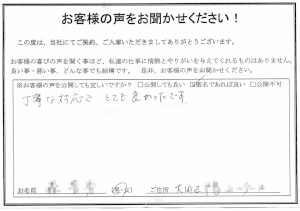 お客様の声をお聞かせください！
この度は、当社にてご契約、ご入庫いただきましてありがとうございます。
お客様の喜びの声を聞く事ほど、私達の仕事に情熱とやりがいを与えてくれるものはありません。
良い事・悪い事、どんな事でも結構です。 是非、お客様の声をお聞かせください。
※お客様の声を公開しても宜しいですか？ □公開しても良い ☑匿名であれば良い □公開不可
丁寧な対応で、とても良かったです。
お名前 (男・女) ご住所 大田区